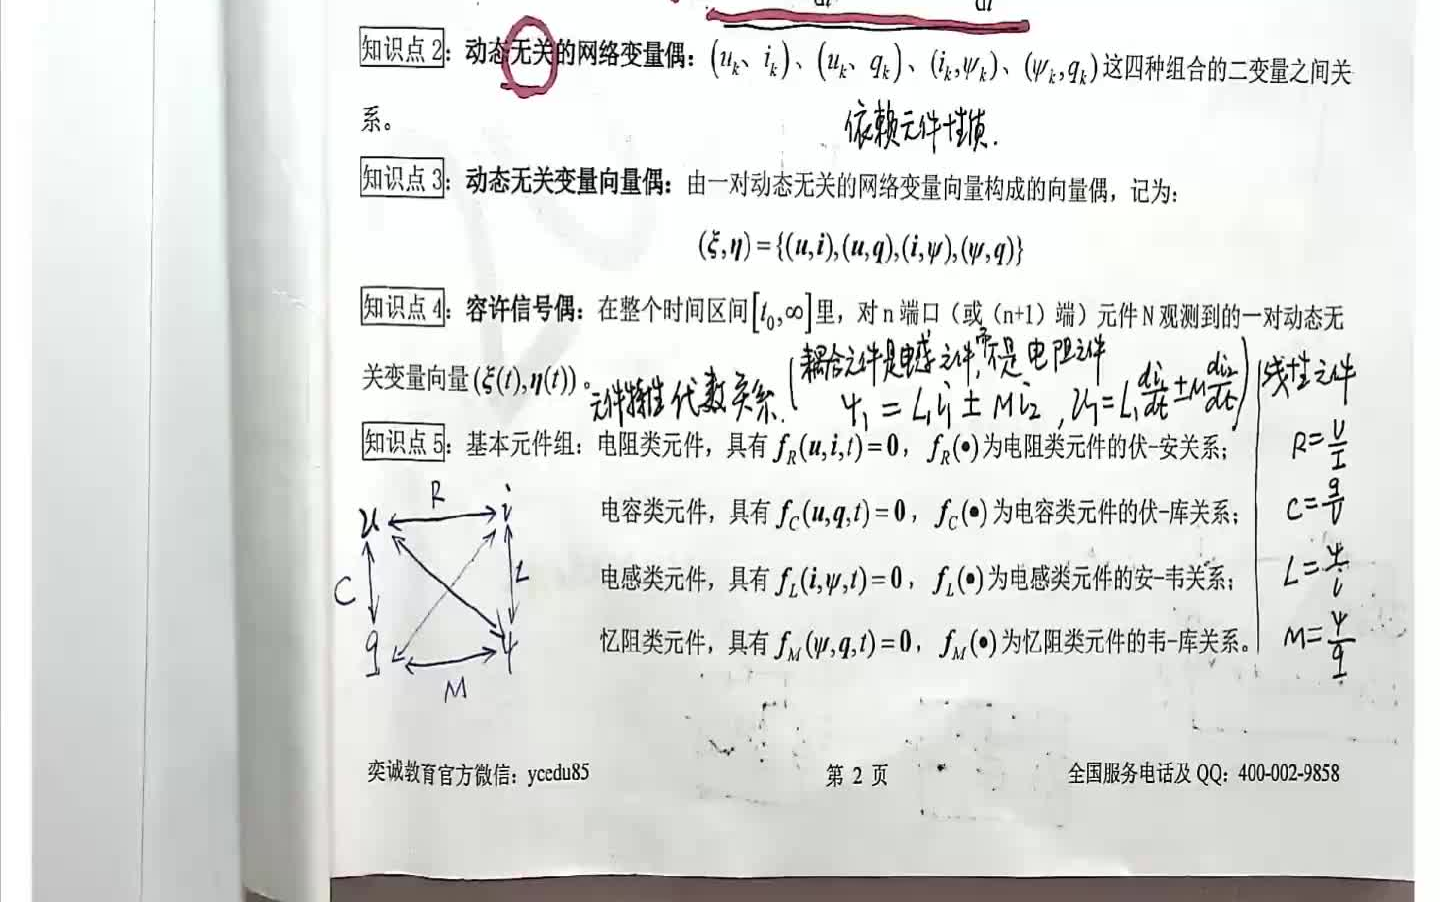 dt dt
知识点2：动态无关的网络变量偶：(u_k、i_k)、(u_k、q_k)、(i_k,ψ_k)、(ψ_k,q_k)这四种组合的二变量之间关
系。
依赖元件性质.
知识点3：动态无关变量向量偶：由一对动态无关的网络变量向量构成的向量偶，记为：
(ξ,η)={(u,i),(u,q),(i,ψ),(ψ,q)}
知识点4：容许信号偶：在整个时间区间[t₀,∞]里，对n端口（或（n+1）端）元件N观测到的一对动态无
关变量向量(ξ(t),η(t))。
元件特性代数关系.
(耦合元件是电感元件,而不是电阻元件
ψ₁=L₁i₁±Mi₂, u₁=L₁di₁/dt±Mdi₂/dt)
线性元件
知识点5：基本元件组：电阻类元件，具有f_R(u,i,t)=0，f_R(•)为电阻类元件的伏-安关系；
R=U/I
电容类元件，具有f_C(u,q,t)=0，f_C(•)为电容类元件的伏-库关系；
C=q/U
电感类元件，具有f_L(i,ψ,t)=0，f_L(•)为电感类元件的安-韦关系；
L=ψ/i
忆阻类元件，具有f_M(ψ,q,t)=0，f_M(•)为忆阻类元件的韦-库关系。
M=ψ/q
R
u i
C L
q ψ
M
奕诚教育官方微信：ycedu85 第 2 页 全国服务电话及QQ：400-002-9858